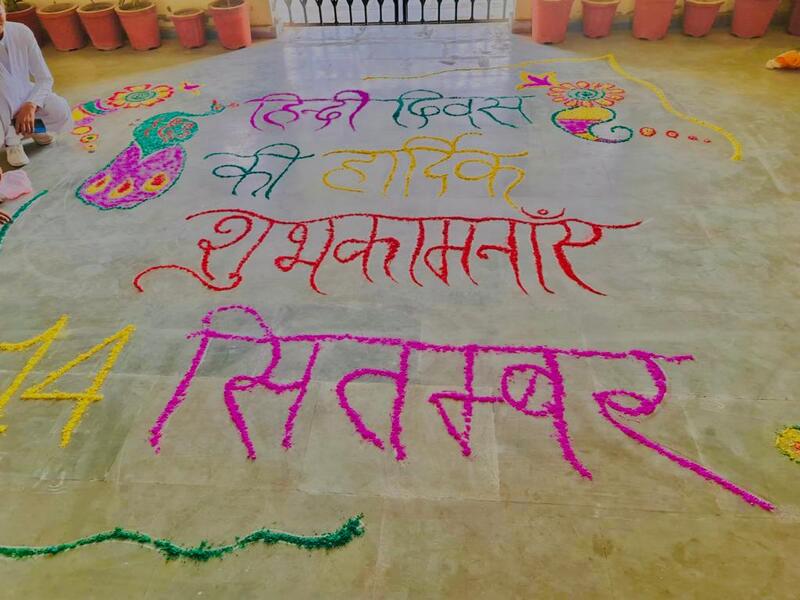 हिन्दी दिवस
की हार्दिक
शुभकामनाँए
14 सितम्बर